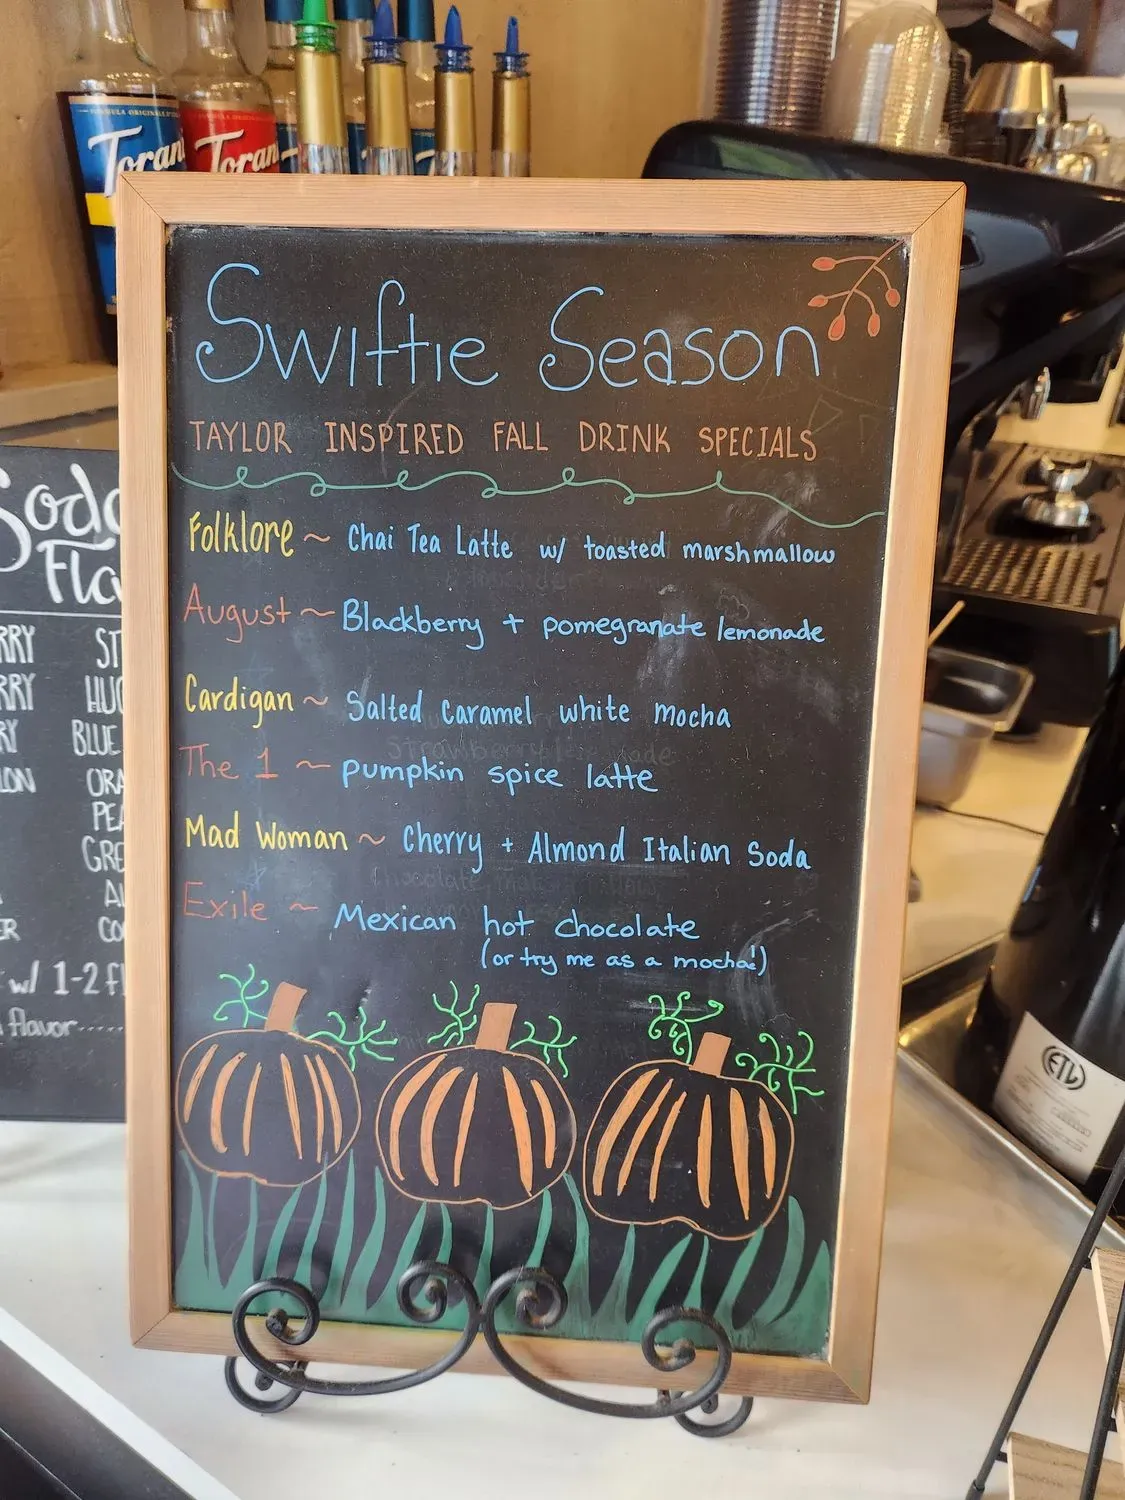 FORMULA ORIGINALE D'
Torani
Torani
Swiftie Season
TAYLOR INSPIRED FALL DRINK SPECIALS
Folklore ~ Chai Tea Latte w/ toasted marshmallow
August ~ Blackberry + pomegranate lemonade
Cardigan ~ Salted Caramel white mocha
The 1 ~ pumpkin spice latte
Mad Woman ~ Cherry + Almond Italian Soda
Exile ~ Mexican hot chocolate
(or try me as a mocha!)
Soda
Fla
RRY ST
RRY HUC
RY BLUE
LON ORA
PEA
GRE
AL
ER CO
w/ 1-2 fl
flavor.....
ETL